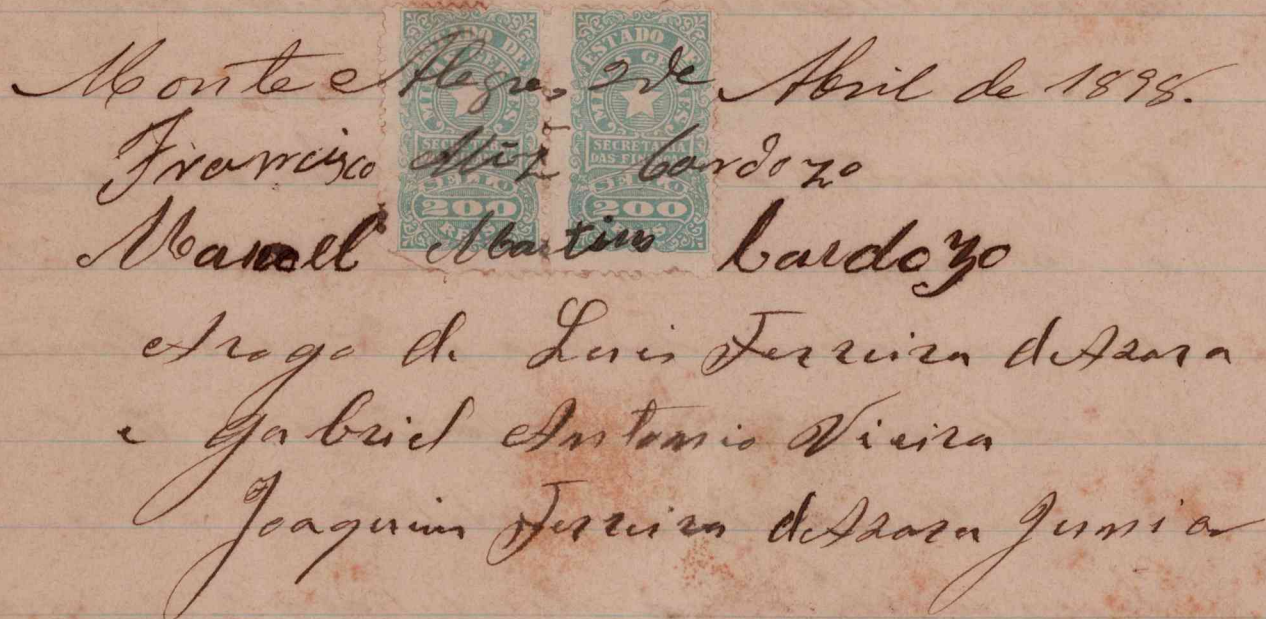 Monte Alegre, 2 de Abril de 1898.
Francisco Cardozo
Manoel Martins Cardozo
Arogo de Luis Ferreira d Azara
e Gabriel Antonio Vieira
Joaquim Ferreira d Azara Junior
ESTADO DE MINAS GERAES
SECRETARIA DAS FINANÇAS
SELLO
200
RÉIS
ESTADO DE MINAS GERAES
SECRETARIA DAS FINANÇAS
SELLO
200
RÉIS